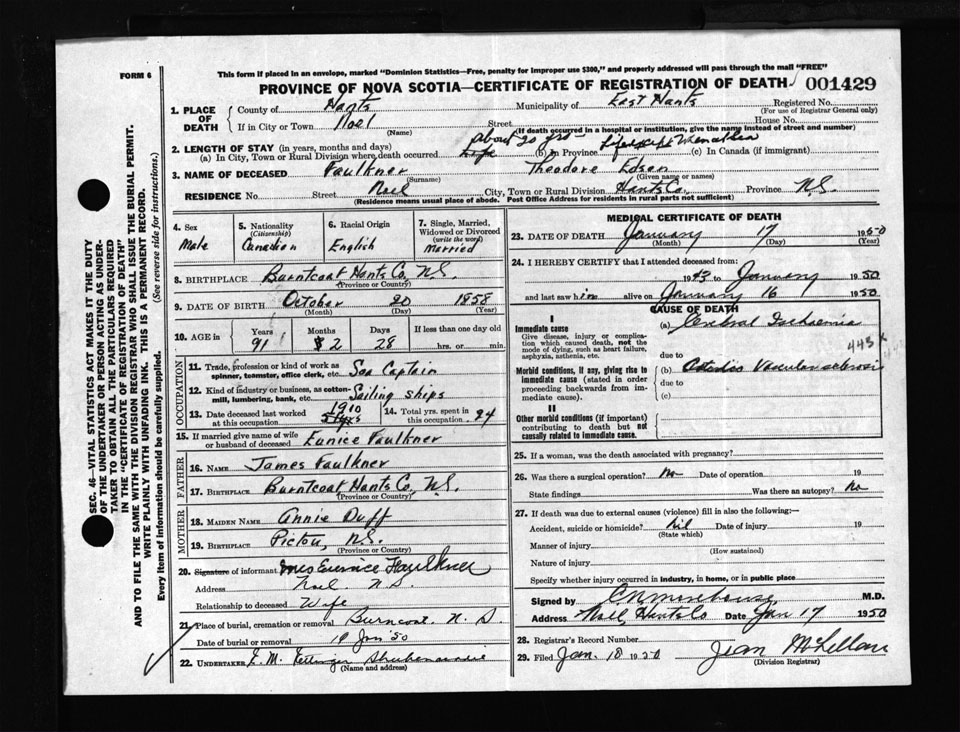 FORM 6
This form if placed in an envelope, marked "Dominion Statistics—Free, penalty for improper use $300," and properly addressed will pass through the mail "FREE"
PROVINCE OF NOVA SCOTIA—CERTIFICATE OF REGISTRATION OF DEATH 001429
SEC. 46—VITAL STATISTICS ACT MAKES IT THE DUTY
OF THE UNDERTAKER OR PERSON ACTING AS UNDER-
TAKER TO OBTAIN ALL THE PARTICULARS REQUIRED
IN THE "CERTIFICATE OF REGISTRATION OF DEATH"
AND TO FILE THE SAME WITH THE DIVISION REGISTRAR WHO SHALL ISSUE THE BURIAL PERMIT.
WRITE PLAINLY WITH UNFADING INK. THIS IS A PERMANENT RECORD.
Every item of information should be carefully supplied. (See reverse side for instructions.)
1. PLACE OF DEATH
County of Hants Municipality of East Hants Registered No.
(For use of Registrar General only)
If in City or Town Noel Street House No.
(Name) (If death occurred in a hospital or institution, give the name instead of street and number)
2. LENGTH OF STAY (in years, months and days)
(a) In City, Town or Rural Division where death occurred Life about 20 yrs (b) In Province Life except when at sea (c) In Canada (if immigrant)
3. NAME OF DECEASED Faulkner Theodore Edson
(Surname) (Given name or names)
RESIDENCE No. Street Noel City, Town or Rural Division Hants Co. Province N.S.
(Residence means usual place of abode. Post Office Address for residents in rural parts not sufficient)
4. Sex
Male
5. Nationality
(Citizenship)
Canadian
6. Racial Origin
English
7. Single, Married,
Widowed or Divorced
(write the word)
Married
8. BIRTHPLACE Burntcoat Hants Co. N.S.
(Province or Country)
9. DATE OF BIRTH October 20 1858
(Month) (Day) (Year)
10. AGE in Years Months Days If less than one day old
91 2 28 hrs. or min.
OCCUPATION
11. Trade, profession or kind of work as
spinner, teamster, office clerk, etc. Sea Captain
12. Kind of industry or business, as cotton-
mill, lumbering, bank, etc. Sailing ships
13. Date deceased last worked
at this occupation 1910
14. Total yrs. spent in
this occupation 24
15. If married give name of wife
or husband of deceased Eunice Faulkner
FATHER
16. NAME James Faulkner
17. BIRTHPLACE Burntcoat Hants Co. N.S.
(Province or Country)
MOTHER
18. MAIDEN NAME Annie Duff
19. BIRTHPLACE Pictou, N.S.
(Province or Country)
20. Signature of informant Mrs Eunice Faulkner
Address Noel N.S.
Relationship to deceased Wife
21. Place of burial, cremation or removal Burncoat. N.S.
Date of burial or removal 19 Jan '50
22. UNDERTAKER E. M. Ettinger Shubenacadie
(Name and address)
MEDICAL CERTIFICATE OF DEATH
23. DATE OF DEATH January 17 1950
(Month) (Day) (Year)
24. I HEREBY CERTIFY that I attended deceased from:
1943 to January 1950
and last saw him alive on January 16 1950
CAUSE OF DEATH
I
Immediate cause
Give disease, injury or complica-
tion which caused death, not the
mode of dying, such as heart failure,
asphyxia, asthenia, etc.
(a) Cerebral Ischaemia
443 X
due to
Morbid conditions, if any, giving rise to
immediate cause (stated in order
proceeding backwards from im-
mediate cause).
(b)
due to
(c)
II
Other morbid conditions (if important)
contributing to death but not
causally related to immediate cause.
25. If a woman, was the death associated with pregnancy?
26. Was there a surgical operation? No Date of operation 19
State findings Was there an autopsy? No
27. If death was due to external causes (violence) fill in also the following:—
Accident, suicide or homicide? Nil Date of injury 19
(State which)
Manner of injury
(How sustained)
Nature of injury
Specify whether injury occurred in industry, in home, or in public place
Signed by C N Morehouse M.D.
Address Noel Hants Co Date Jan 17 1950
28. Registrar's Record Number
29. Filed Jan. 18 1950 Jean McLellan
(Division Registrar)